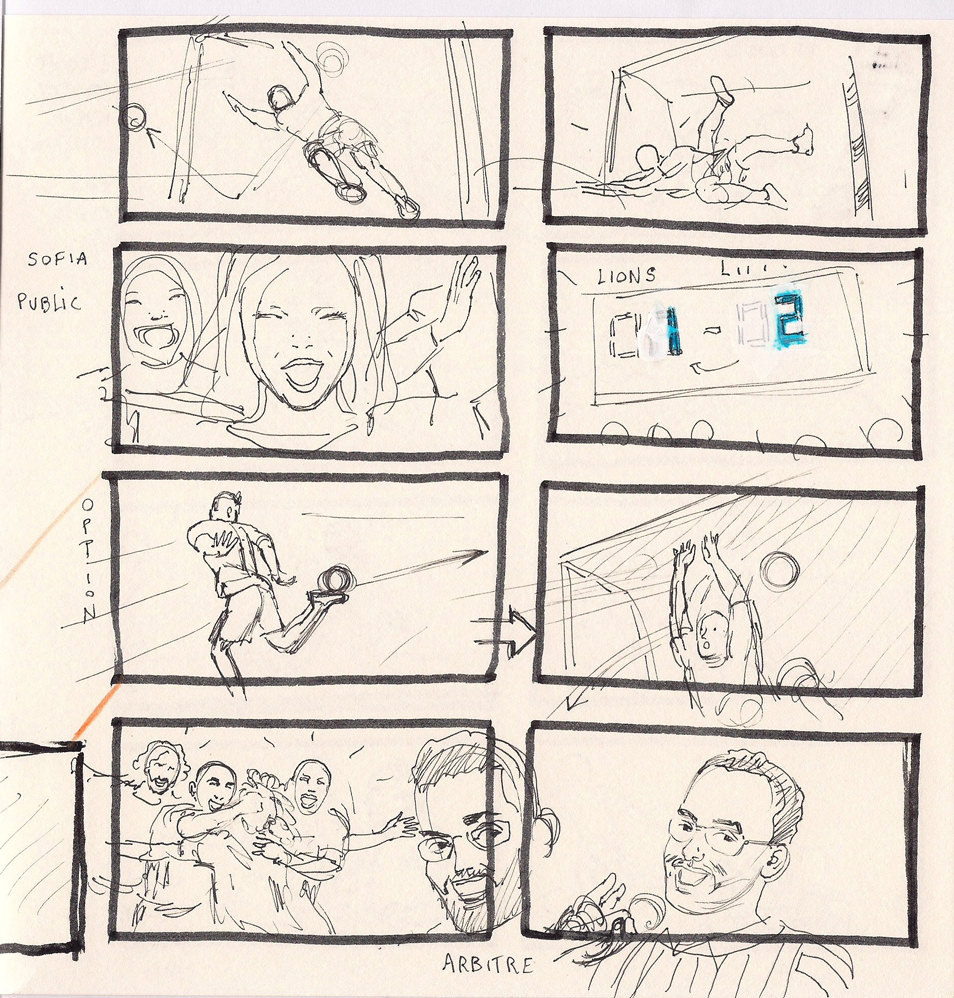 SOFIA
PUBLIC
LIONS
1 - 2
OPTION
ARBITRE